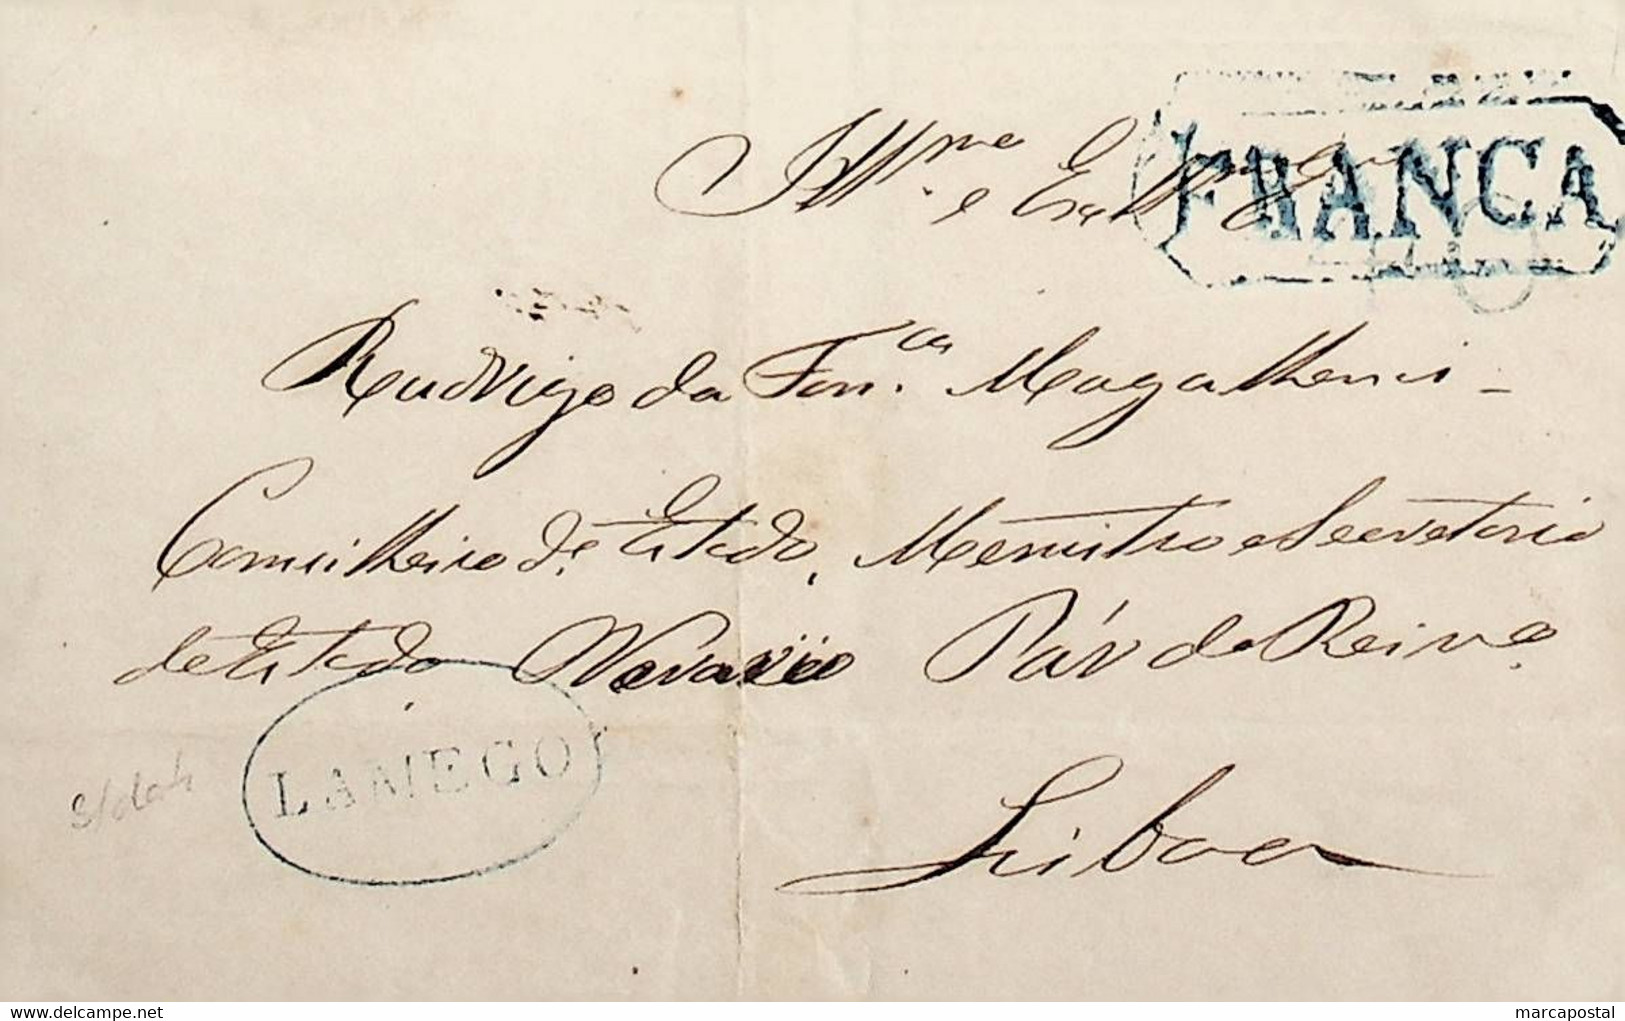 Illmo e Exmo Snr
FRANCA
Rudrigo da Fonca Magalhenis -
Comcilheiro de Estado, Menistro e Secretario
de Estado Par do Reino
LAMEGO
s/data
Lisboa
delcampe.net
marcapostal